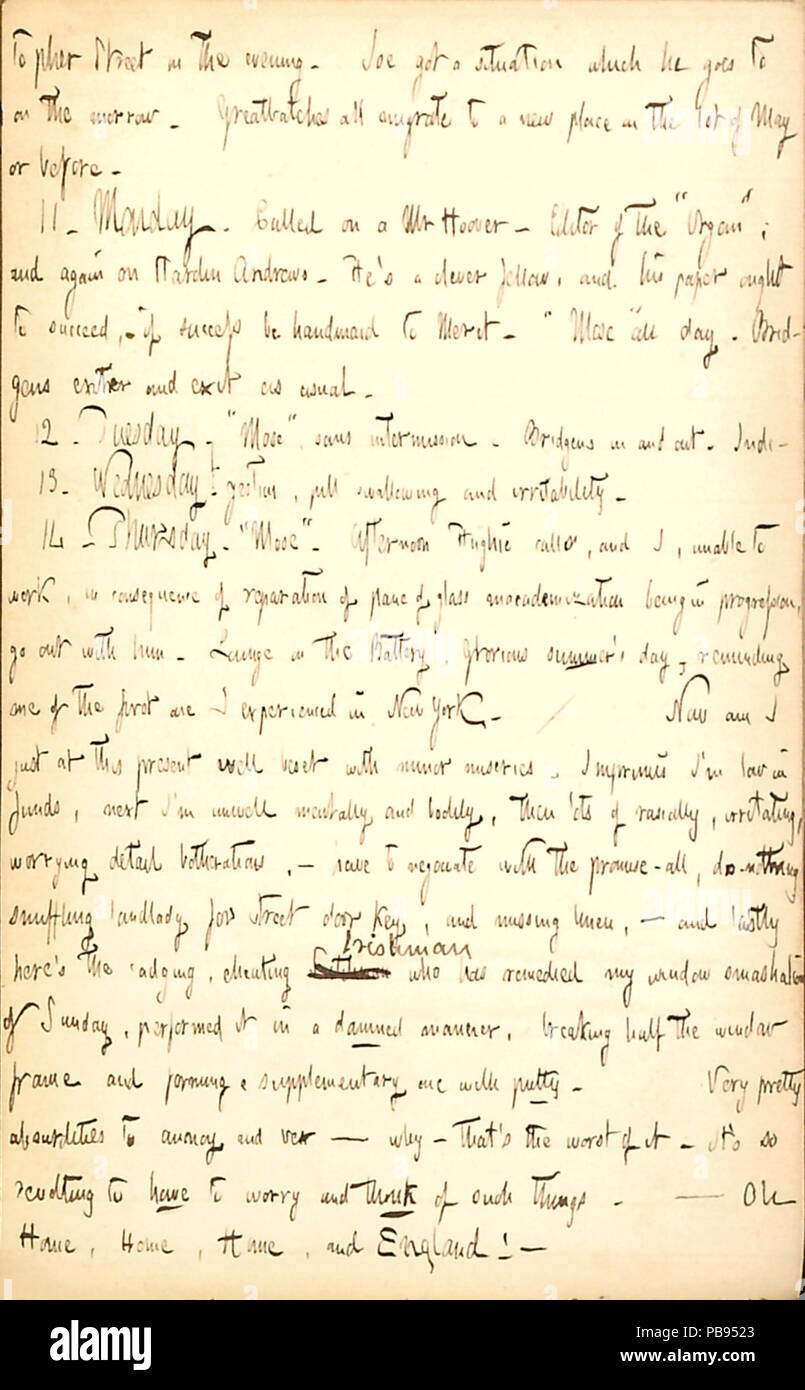 topher Street in the evening. Joe got a situation which he goes to
on the morrow. Greatbatches all emigrate to a new place on the 1st of May
or before.
11. Monday. Called on a Mr Hoover – Editor of the "Organ";
and again on Hardin Andrews. He's a clever fellow, and his paper ought
to succeed, – if success be handmaid to Merit. "Mose" all day. Brid-
gens enter and exit as usual.
12. Tuesday. "Mose", sans intermission. Bridgens in and out. Indi-
13. Wednesday gestion, pill swallowing and irritability.
14. Thursday. "Mose". Afternoon Hughie called, and I, unable to
work, in consequence of reparation of pane of glass macademization being in progression,
go out with him. Lounge on the Battery. Glorious summer's day, reminding
me of the first one I experienced in New York. Now am I
just at this present well beset with minor miseries. Imprimis I'm low in
funds, next I'm unwell mentally and bodily, then lots of rascally, irritating,
worrying detail botherations, – have to negociate with the promise-all, do-nothing
snuffling landlady for street door key, and missing linen, – and lastly
here's the cadging, cheating Irishman who has remedied my window smashation
of Sunday, performed it in a damned manner, breaking half the window
frame and forming a supplementary one with putty. Very pretty
absurdities to annoy and vex — why – that's the worst of it – it's so
revolting to have to worry and think of such things. — Oh
Home, Home, Home, and England! –
alamy
Image ID: PB9523
www.alamy.com